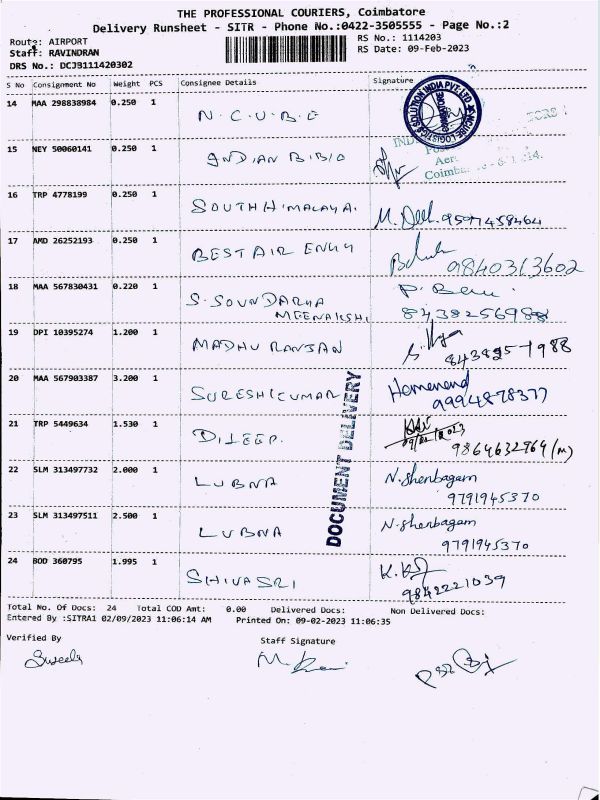 THE PROFESSIONAL COURIERS, Coimbatore
Delivery Runsheet - SITR - Phone No.:0422-3505555 - Page No.:2
Route: AIRPORT
RS No.: 1114203
Staff: RAVINDRAN
RS Date: 09-Feb-2023
DRS No.: DCJB111420302
S No Consignment No Weight PCS Consignee Details Signature
14 MAA 298838984 0.250 1 N.C.U.B.E
15 NEY 50060141 0.250 1 INDIAN BIBIO
16 TRP 4778199 0.250 1 SOUTH HIMALAYA. 9597458464
17 AMD 26252193 0.250 1 BEST AIR ENGY 9840313602
18 MAA 567830431 0.220 1 S. SOUNDARYA
MEENAKSHI 8438256988
19 DPI 10395274 1.200 1 MADHU RANJAN
20 MAA 567903387 3.200 1 SURESHKUMAR
21 TRP 5449634 1.530 1 DILEEP. 9864632964 (M)
22 SLM 313497732 2.000 1 LUBNA N. Shenbagam
9791945370
23 SLM 313497511 2.500 1 LUBNA N. Shenbagam
9791945370
24 BOD 360795 1.995 1 SHIVASRI 9842221039
DOCUMENT DELIVERY
Total No. Of Docs: 24 Total COD Amt: 0.00 Delivered Docs: Non Delivered Docs:
Entered By :SITRA1 02/09/2023 11:06:14 AM Printed On: 09-02-2023 11:06:35
Verified By
Staff Signature